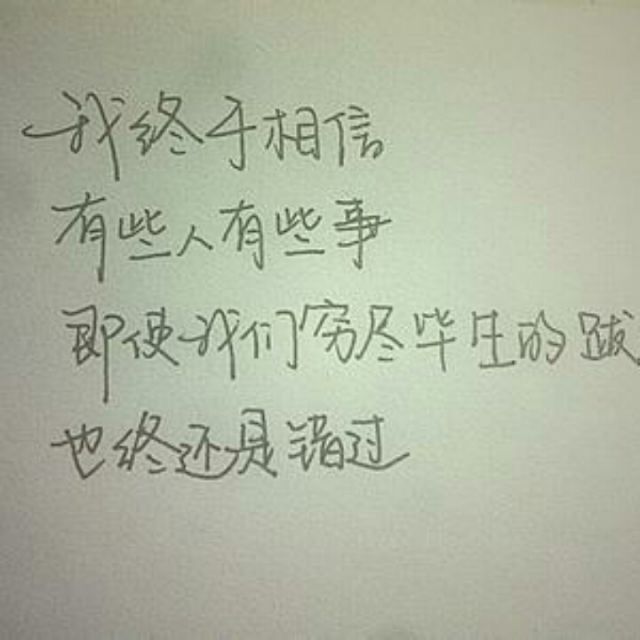 我终于相信
有些人有些事
即使我们穷尽毕生的跋
也终还是错过